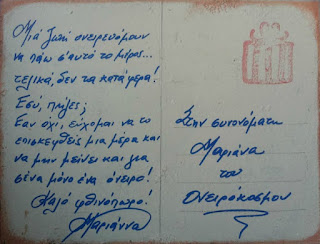 Μιά ζωή ονειρευόμουν
να πάω σ' αυτό το μέρος...
τελικά, δεν τα κατάφερα!
Εσύ, πήγες;
Εαν όχι, εύχομαι να το
επισκεφθείς μια μέρα και
να μην μείνει και για
σένα μόνο ένα όνειρο!
Καλό φθινόπωρο!
Μαριάννα
Στην συνονόματη
Μαριάνα
του
Ονειρόκοσμου